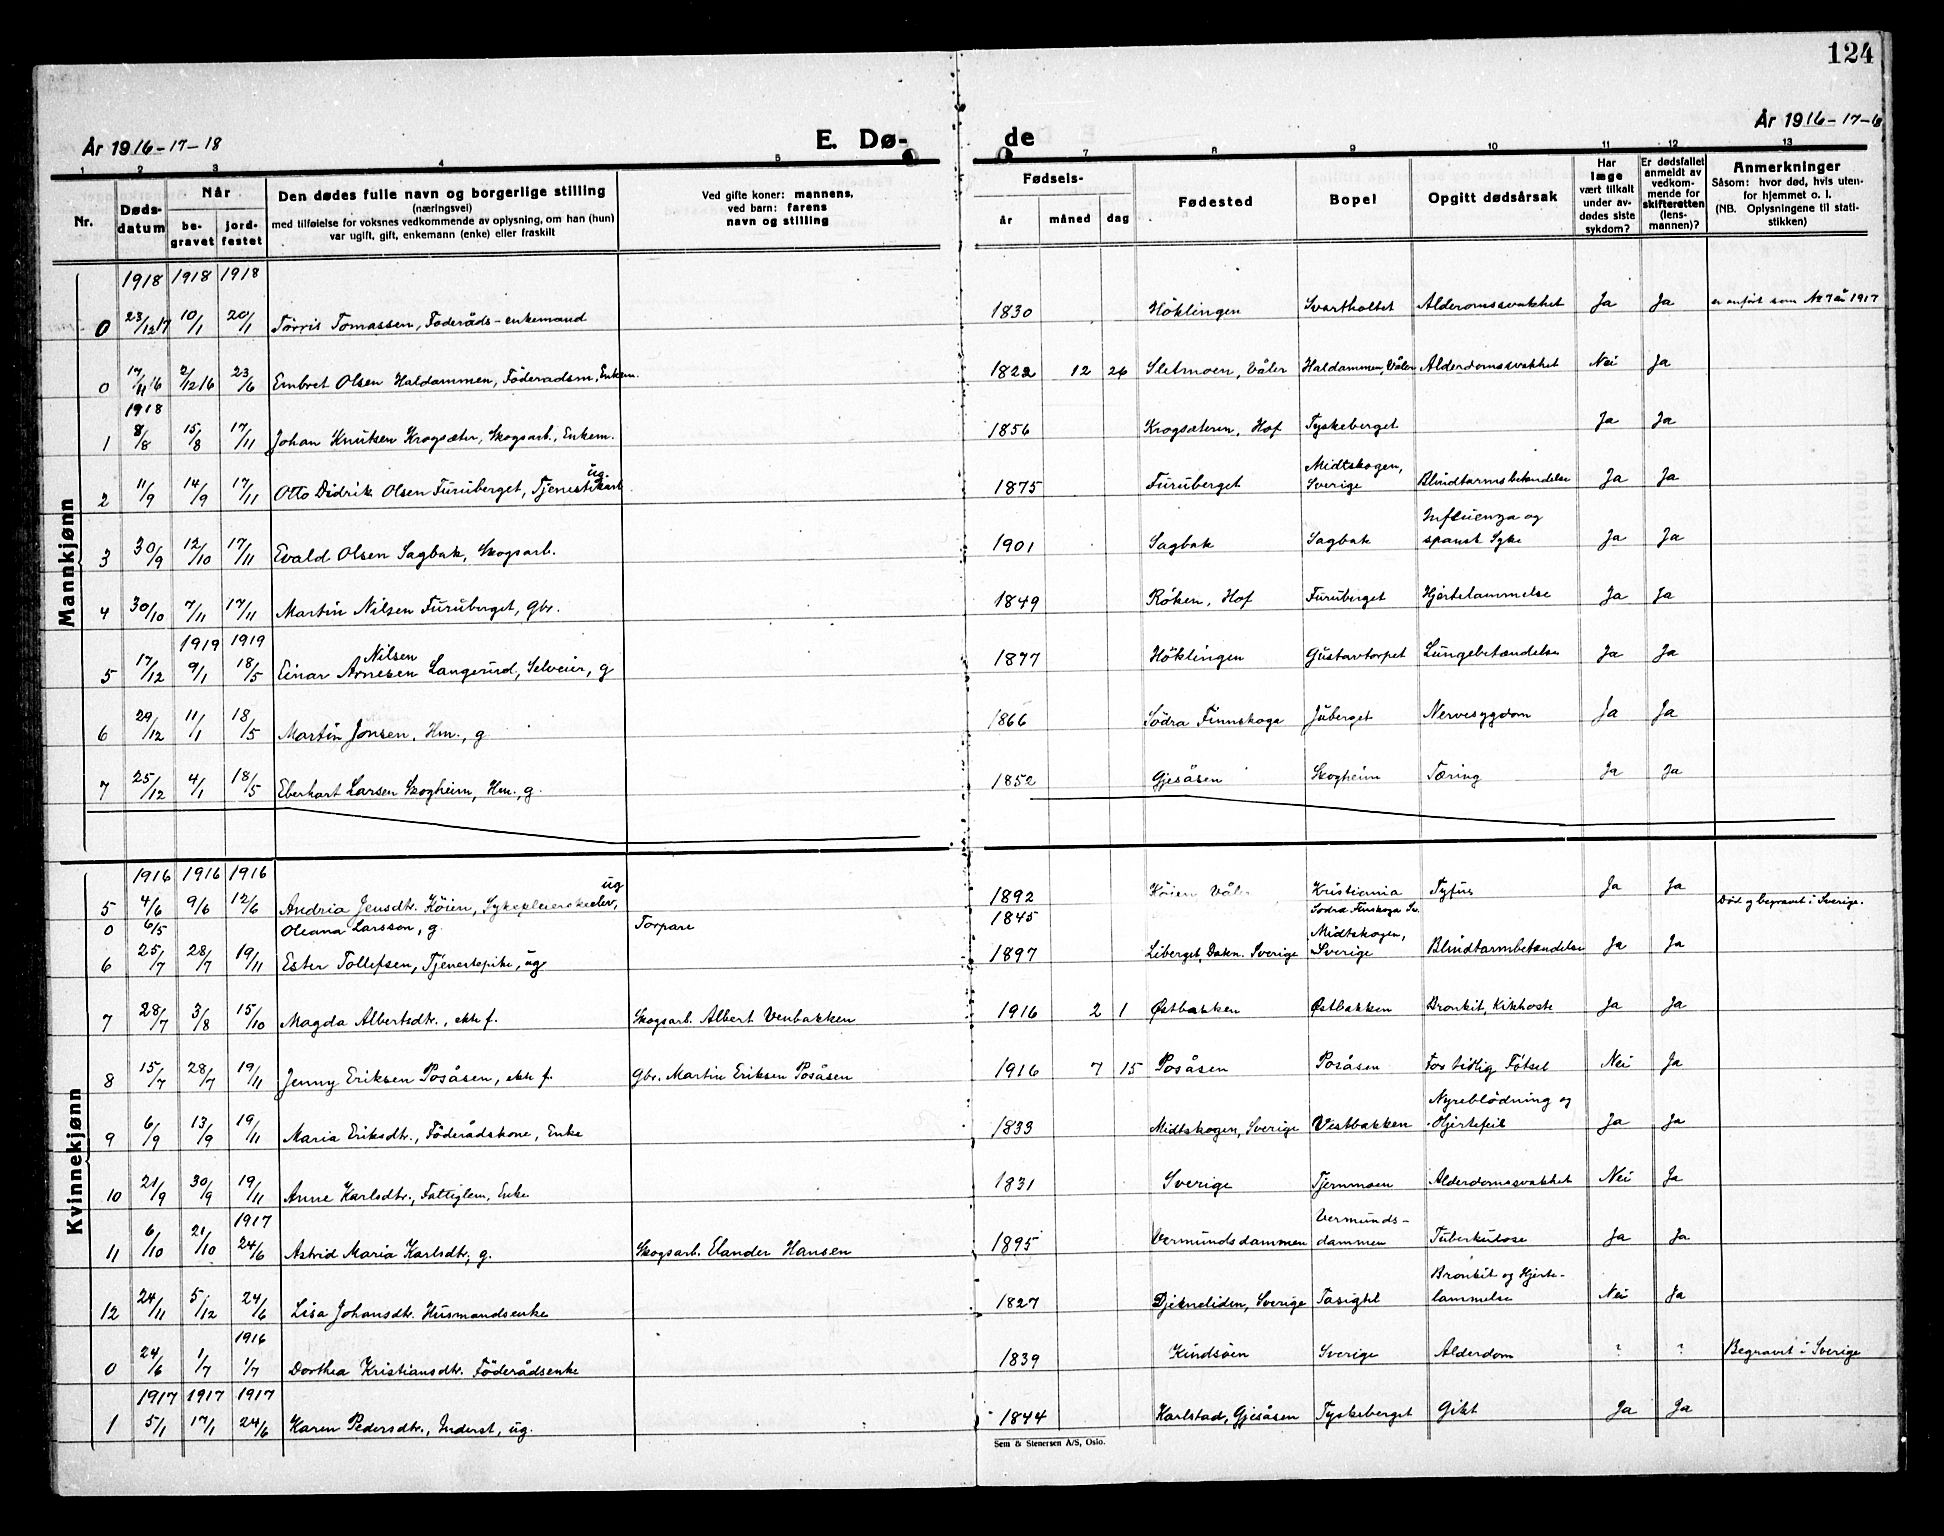 124
År 1916-17-18
E. Dø-
de
År 1916-17-18
1 2 3 4 5 7 8 9 10 11 12 13
Nr.
Døds-
datum
Når
be-
gravet
jord-
festet
Den dødes fulle navn og borgerlige stilling
(næringsvei)
med tilføielse for voksnes vedkommende av oplysning, om han (hun)
var ugift, gift, enkemann (enke) eller fraskilt
Ved gifte koner: mannens,
ved barn: farens
navn og stilling
Fødsels-
år måned dag
Fødested
Bopel
Opgitt dødsårsak
Har
læge
vært tilkalt
under av-
dødes siste
sykdom?
Er dødsfallet
anmeldt av
vedkom-
mende for
skifteretten
(lens-
mannen)?
Anmerkninger
Såsom: hvor død, hvis uten-
for hjemmet o. l.
(NB. Oplysningene til stati-
stikken)
Mannkjønn
1918 1918 1918
0 23/12 17 10/1 20/1 Torris Tomassen, Foderåds-enkemand 1830 Höklingen Svartholtet Alderomssvakhet Ja Ja er anført som No 7 år 1917
0 17/11 16 2/12 16 23/6 Embret Olsen Haldammen, Föderadsm., Enkem. 1822 12 26 Sletmoen, Våler Haldammen, Våler Alderdomssvakhet Nei Ja
1918
1 8/8 15/8 17/11 Johan Knutsen Krogsæter, Skogsarb., Enkem. 1856 Krogsæteren, Hof Tyskeberget Ja Ja
2 11/9 14/9 17/11 Otto Didrik Olsen Furuberget, Tjenestkarl ug. 1875 Furuberget Midtskogen, Sverige Blindtarmsbetændelse Ja Ja
3 30/9 12/10 17/11 Evald Olsen Sagbak, Skogsarb. 1901 Sagbak Sagbak Influenza og spansk Syke Ja Ja
4 30/10 7/11 17/11 Martin Nilsen Furuberget, gbr. 1849 Röken, Hof Furuberget Hjertelammelse Ja Ja
1919 1919
5 17/12 9/1 18/5 Einar Arnesen Nilsen Langerud, Selveier, g 1877 Höklingen Gustavtorpet Lungebetændelse Ja Ja
6 29/12 11/1 18/5 Martin Jonsen, Hm., g. 1866 Södra Finnskoga Juberget Nervesygdom Ja Ja
7 25/12 4/1 18/5 Eberhart Larsen Skogheim, Hm., g. 1852 Gjesåsen Skogheim Tæring Ja Ja
Kvinnekjønn
1916 1916 1916
5 4/6 9/6 12/6 Andria Jensdtr. Köien, Sykepleierskeelev, ug 1892 Köien Våler Kristiania Tyfus Ja Ja
0 6/5 Oleana Larsson, g. Torpare 1845 Södra Finskoga Sv. Död og begravet i Sverige.
6 25/7 28/7 19/11 Ester Tollefsen, Tjenestepike, ug 1897 Liberget, Dakn. Sverige Midtskogen, Sverige Blindtarmbetændelse Ja Ja
7 28/7 3/8 15/10 Magda Albertsdtr., ekte f. Skogsarb. Albert Venbakken 1916 2 1 Østbakken Østbakken Bronkit, Kikhoste Ja Ja
8 15/7 28/7 19/11 Jenny Eriksen Posåsen, ekte f. Gbr. Martin Eriksen Posåsen 1916 7 15 Posåsen Posåsen For tidlig Fötsel Nei Ja
9 6/9 13/9 19/11 Maria Eriksdtr., Föderådskone, Enke 1833 Midtskogen, Sverige Vestbakken Nyreblödning og Hjertefeil Ja Ja
10 21/9 30/9 19/11 Anne Karlsdtr., Fattiglem, Enke 1831 Sverige Tjernmoen Alderdomssvakhet Nei Ja
1917
11 6/10 21/10 24/6 Astrid Maria Karlsdtr, g. Skogsarb. Elander Hansen 1895 Vermundsdammen Vermunds-dammen Tuberkulose Ja Ja
12 24/11 5/12 24/6 Lisa Johansdtr. Husmandsenke 1827 Djekneliden, Sverige Tasight Bronkit og Hjerte-lammelse Nei Ja
1916
0 24/6 1/7 1/7 Dorthea Kristiansdtr. Föderådsenke 1839 Kindsöen Sverige Alderdom ? ? Begravet i Sverige
1917 1917 1917
1 5/1 17/1 24/6 Karen Pedersdtr., Inderst, ug. 1844 Karlstad, Gjesåsen Tyskeberget Gikt Ja Ja
Sem & Stenersen A/S, Oslo.